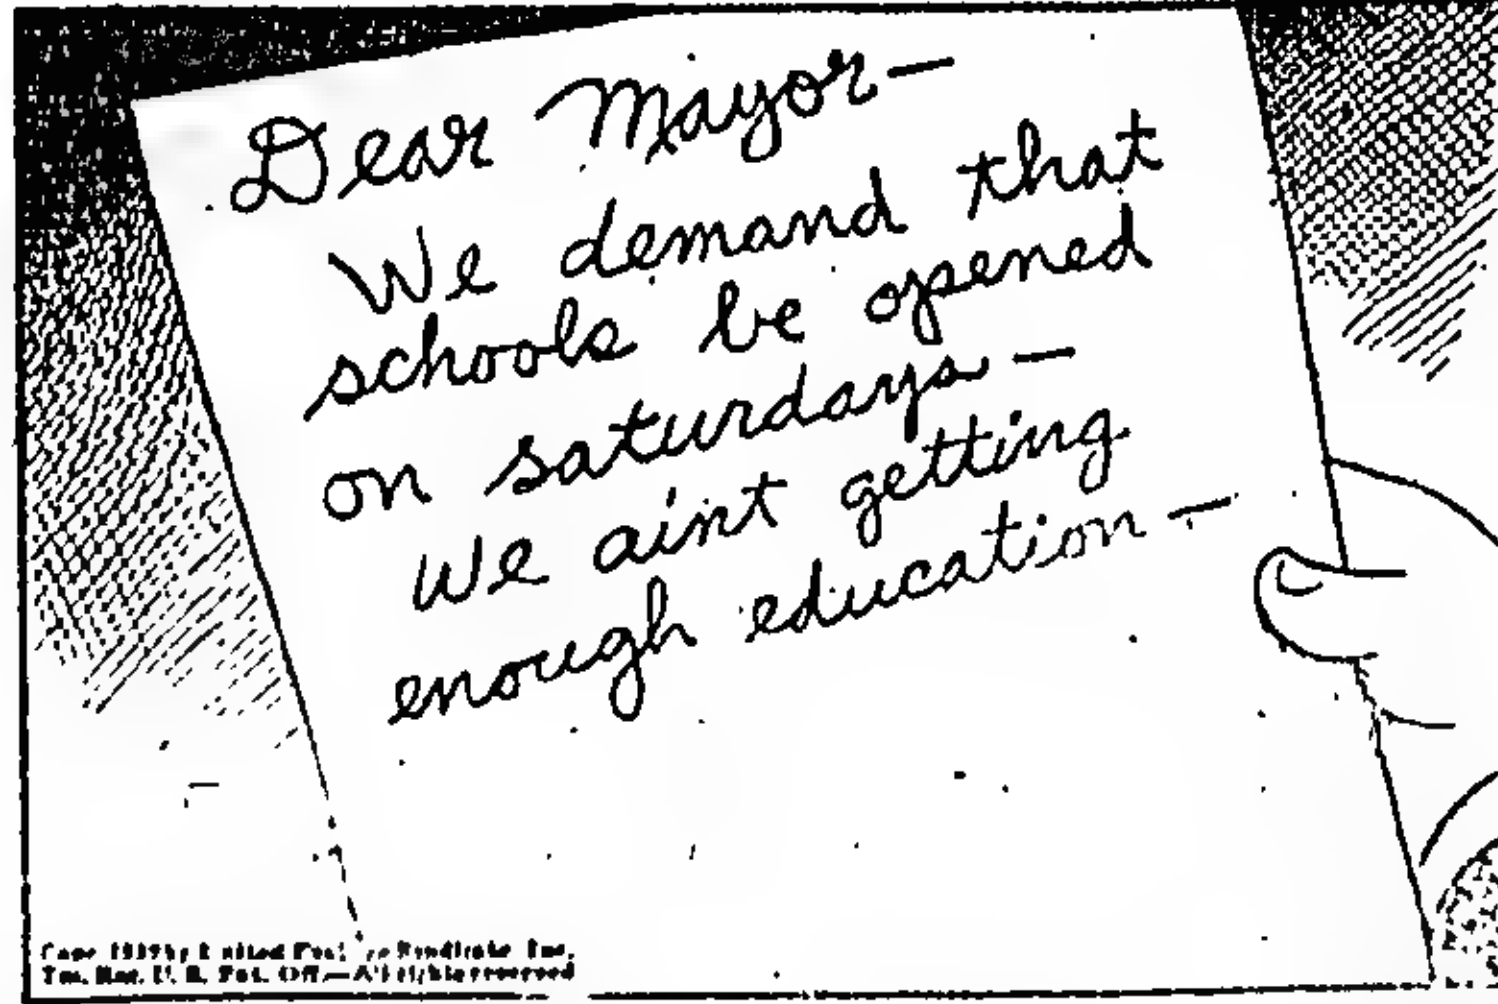 Dear Mayor—
We demand that
schools be opened
on saturdays—
We aint getting
enough education—
Copr. 1939 by United Feature Syndicate Inc.
Tm. Reg. U. S. Pat. Off.—All rights reserved